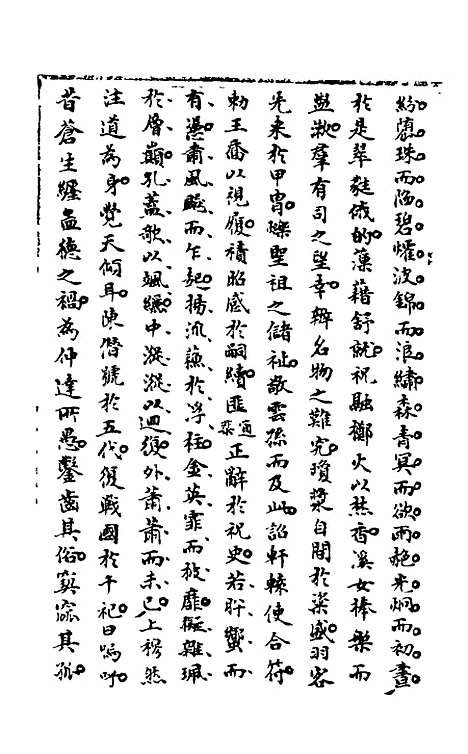 紛隳珠而陷碧燿波錦而浪繡森青冥而欲雨赩光炯而初晝
於是翠蕤俄的藻藉舒就祝融擲火以焚香溪女捧盤而
盥漱羣有司之望幸辨名物之難究瓊漿自間於粢盛羽客
先来於甲胄爍聖祖之儲祉敬雲孫而及此詔軒轅使合符
勅王喬以視履積昭感於嗣續匪通棐正辭於祝史若肸蠁而
有憑肅風飈而乍起揚流蘇於浮柱金英霏而披靡擬雜珮
於層巔孔蓋欹以颯纚中漎漎以迴復外蕭蕭而未已上穆然
注道為身覺天傾耳陳僭號於五代復戰國於千祀曰嗚呼
昔蒼生纏孟德之禍為仲達所愚鑿齒其俗窫窳其孤